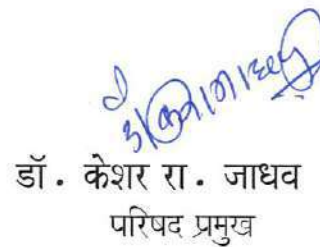 डॉ. केशर रा. जाधव
परिषद प्रमुख